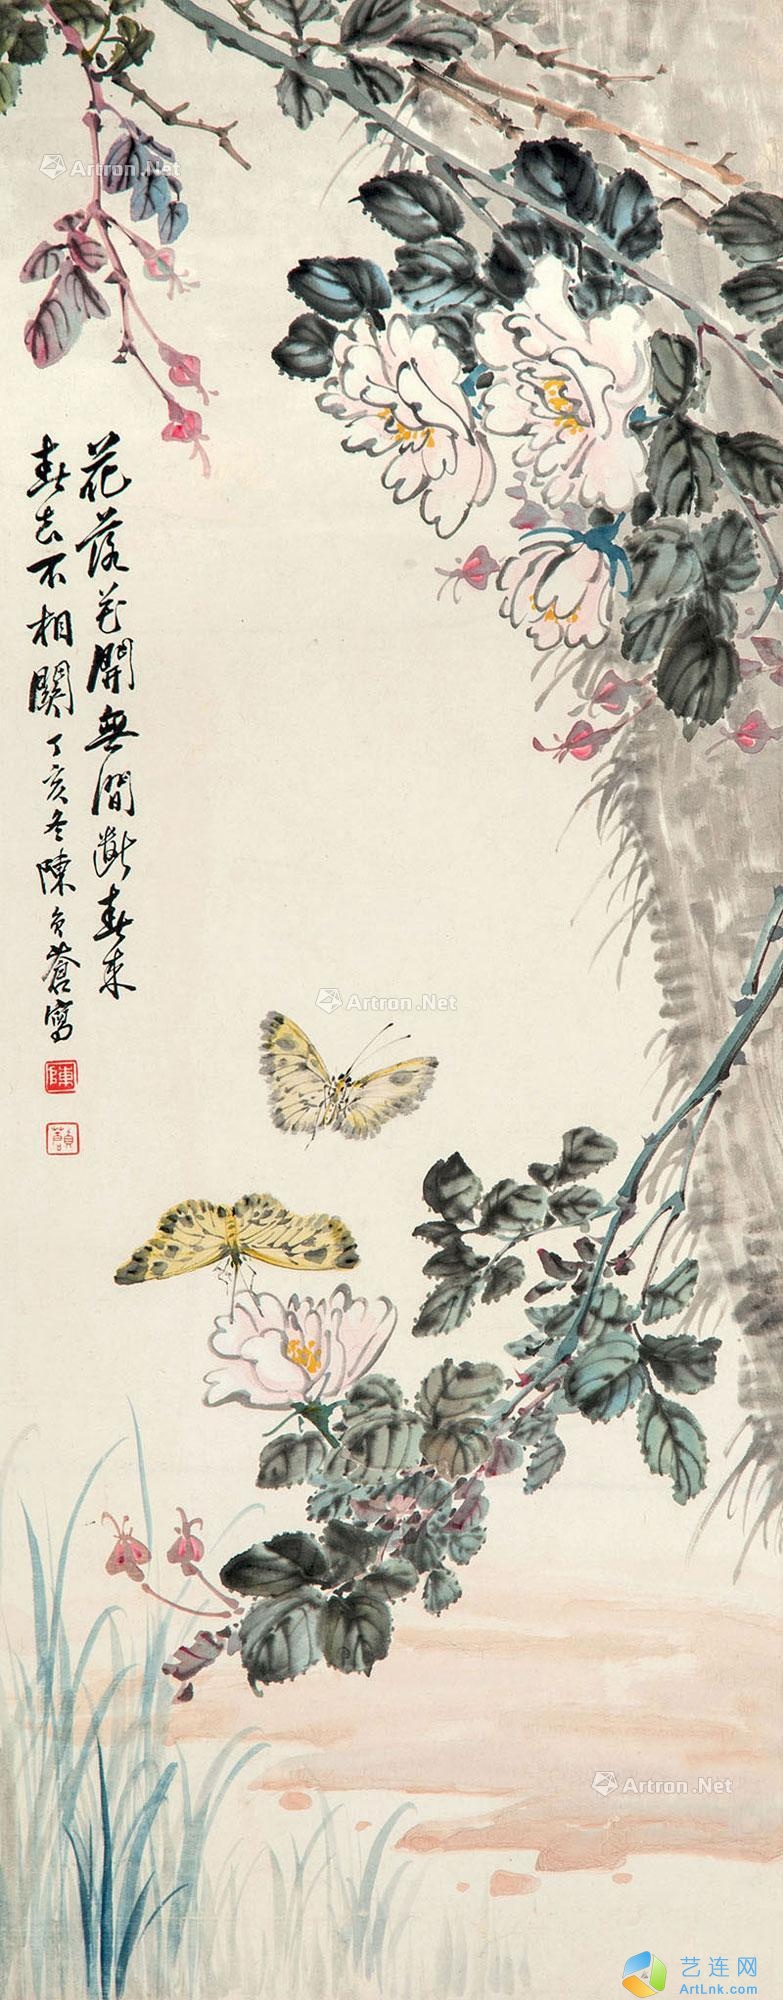 花落花開無間斷春來
春去不相關丁亥冬陳負蒼寫
陳
Artron.Net
Artron.Net
Artron.Net
艺连网
ArtLnk.com